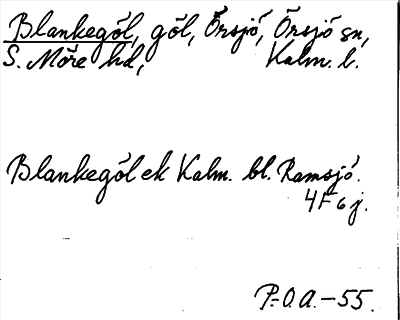 Blankegöl, göl, Örsjö, Örsjö sn,
S. Möre hd, Kalm. l.
Blankegöl ek Kalm. bl. Ramsjö.
4F 6 j.
P.O.A.-55.